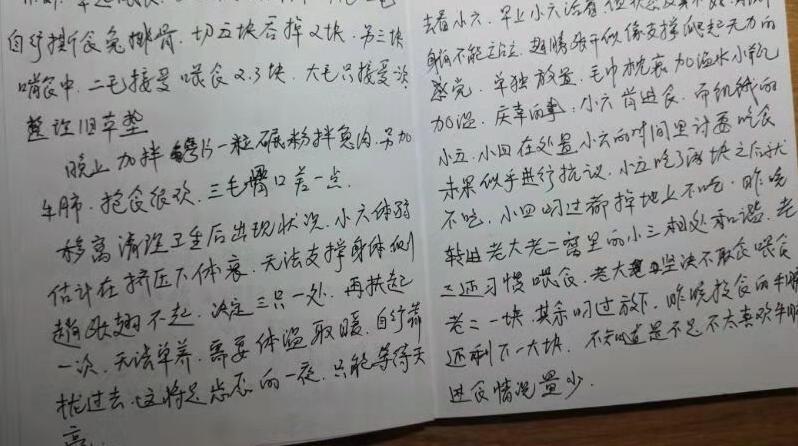 自行撕食兔排骨. 切五块吞掉2块. 另三块
喂食中. 二毛接受喂食2.3块. 大毛只接受次
整理旧草垫
晚上加拌 片一粒碾粉拌兔肉. 另加
牛肺. 抢食很欢. 三毛胃口差一点.
移离清理卫生后出现状况. 小六体弱
估计在挤压下体衰. 无法支撑身体侧
趟 翅不起. 决定三只一处. 再扶起
一次. 无法单养. 需要体温取暖. 自行靠
拢过去. 这将是忐忑的一夜. 只能等待天
亮.
去看小六. 早上小六活着但状态
身前不能立. 趟 似像支撑爬起无力的
感觉. 单独放置. 毛巾 裹加温水小瓶
加温. 庆幸的事. 小六肯进食. 而饥饿的
小五. 小四在处置小六的时间里讨要吃食
未果似乎进行抗议. 小五吃了两块之后就
不吃. 小四叼过都掉地上不吃. 昨晚
转由老大老二窝里的小三相处和谐. 老
二还习惯喂食. 老大 坚决不取食喂食
老二一块. 其余叼过放下. 昨晚投食的牛肺
还剩下一大块. 不知道是不是不太喜欢牛肺
进食情况量少.